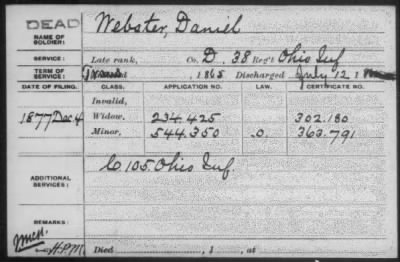 DEAD
Webster, Daniel
NAME OF SOLDIER:
SERVICE: Late rank, Co. D. 38 Reg't Ohio Inf
TERM OF SERVICE: 1865 Discharged July 12 1
DATE OF FILING. CLASS. APPLICATION NO. LAW. CERTIFICATE NO.
Invalid,
1877 Dec. 4 Widow, 234.425 302.180
Minor, 544.350 .O. 363.791
ADDITIONAL SERVICES: C 105. Ohio Inf.
REMARKS:
H.P.M. Died , 1 , at